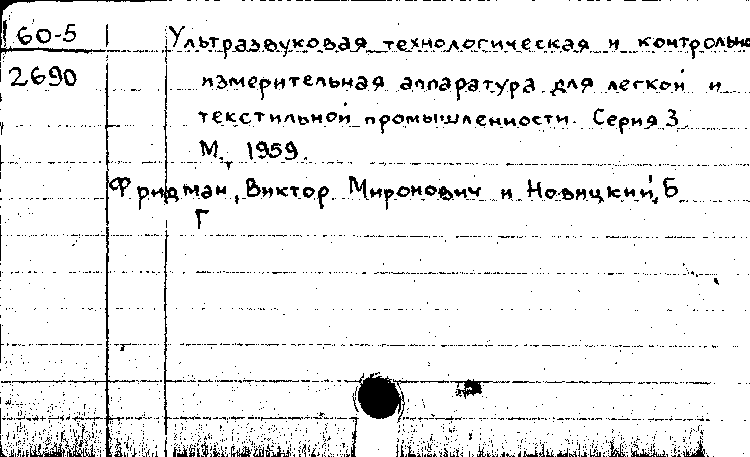 60-5 Ультразвуковая технологическая и контрольно
2690 измерительная аппаратура для легкой и
текстильной промышленности. Серия 3
М., 1959.
Фридман, Виктор Миронович и Новицкий, Б
Г